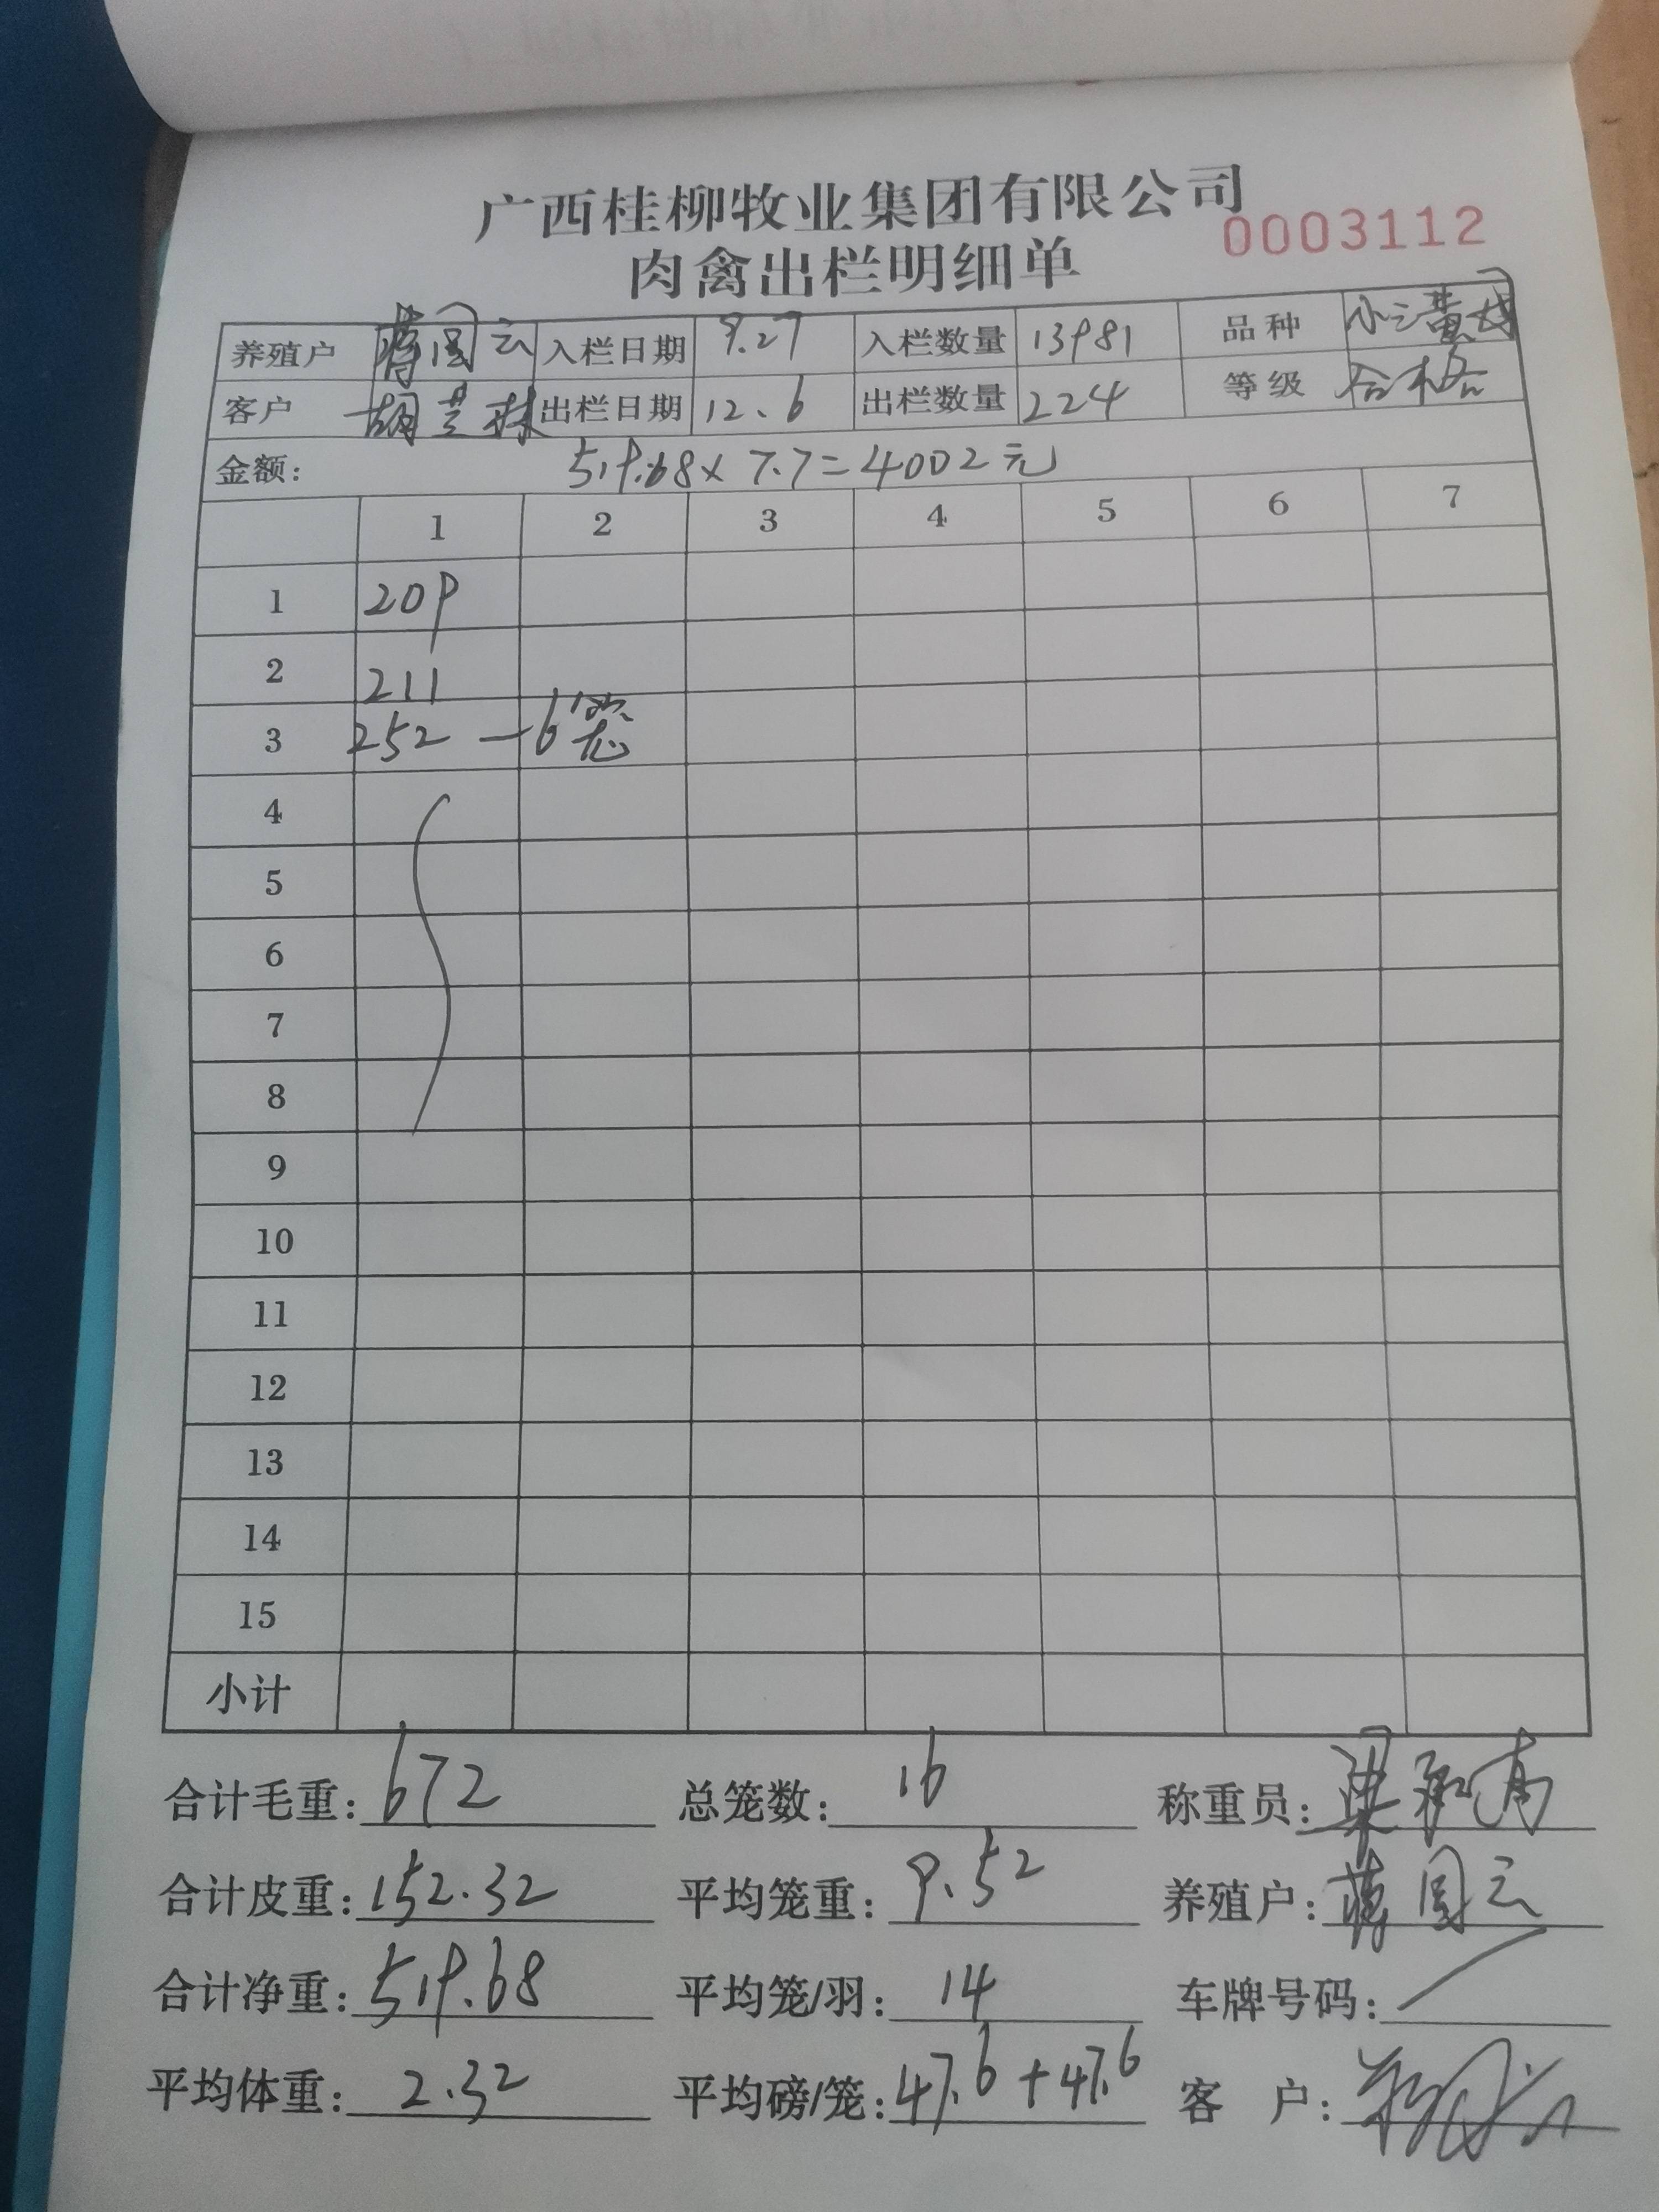 广西桂柳牧业集团有限公司
肉禽出栏明细单 0003112
养殖户 蒋国云 入栏日期 9.27 入栏数量 13981 品种 小三黄
客户 胡 林 出栏日期 12.6 出栏数量 224 等级 合格
金额: 519.68×7.7=4002元
1 2 3 4 5 6 7
1 209
2 211
3 252 —6笼
4
5
6
7
8
9
10
11
12
13
14
15
小计
合计毛重: 672 总笼数: 16 称重员: 梁 高
合计皮重: 152.32 平均笼重: 9.52 养殖户: 蒋国云
合计净重: 519.68 平均笼/羽: 14 车牌号码:
平均体重: 2.32 平均磅/笼: 47.6+47.6 客 户: